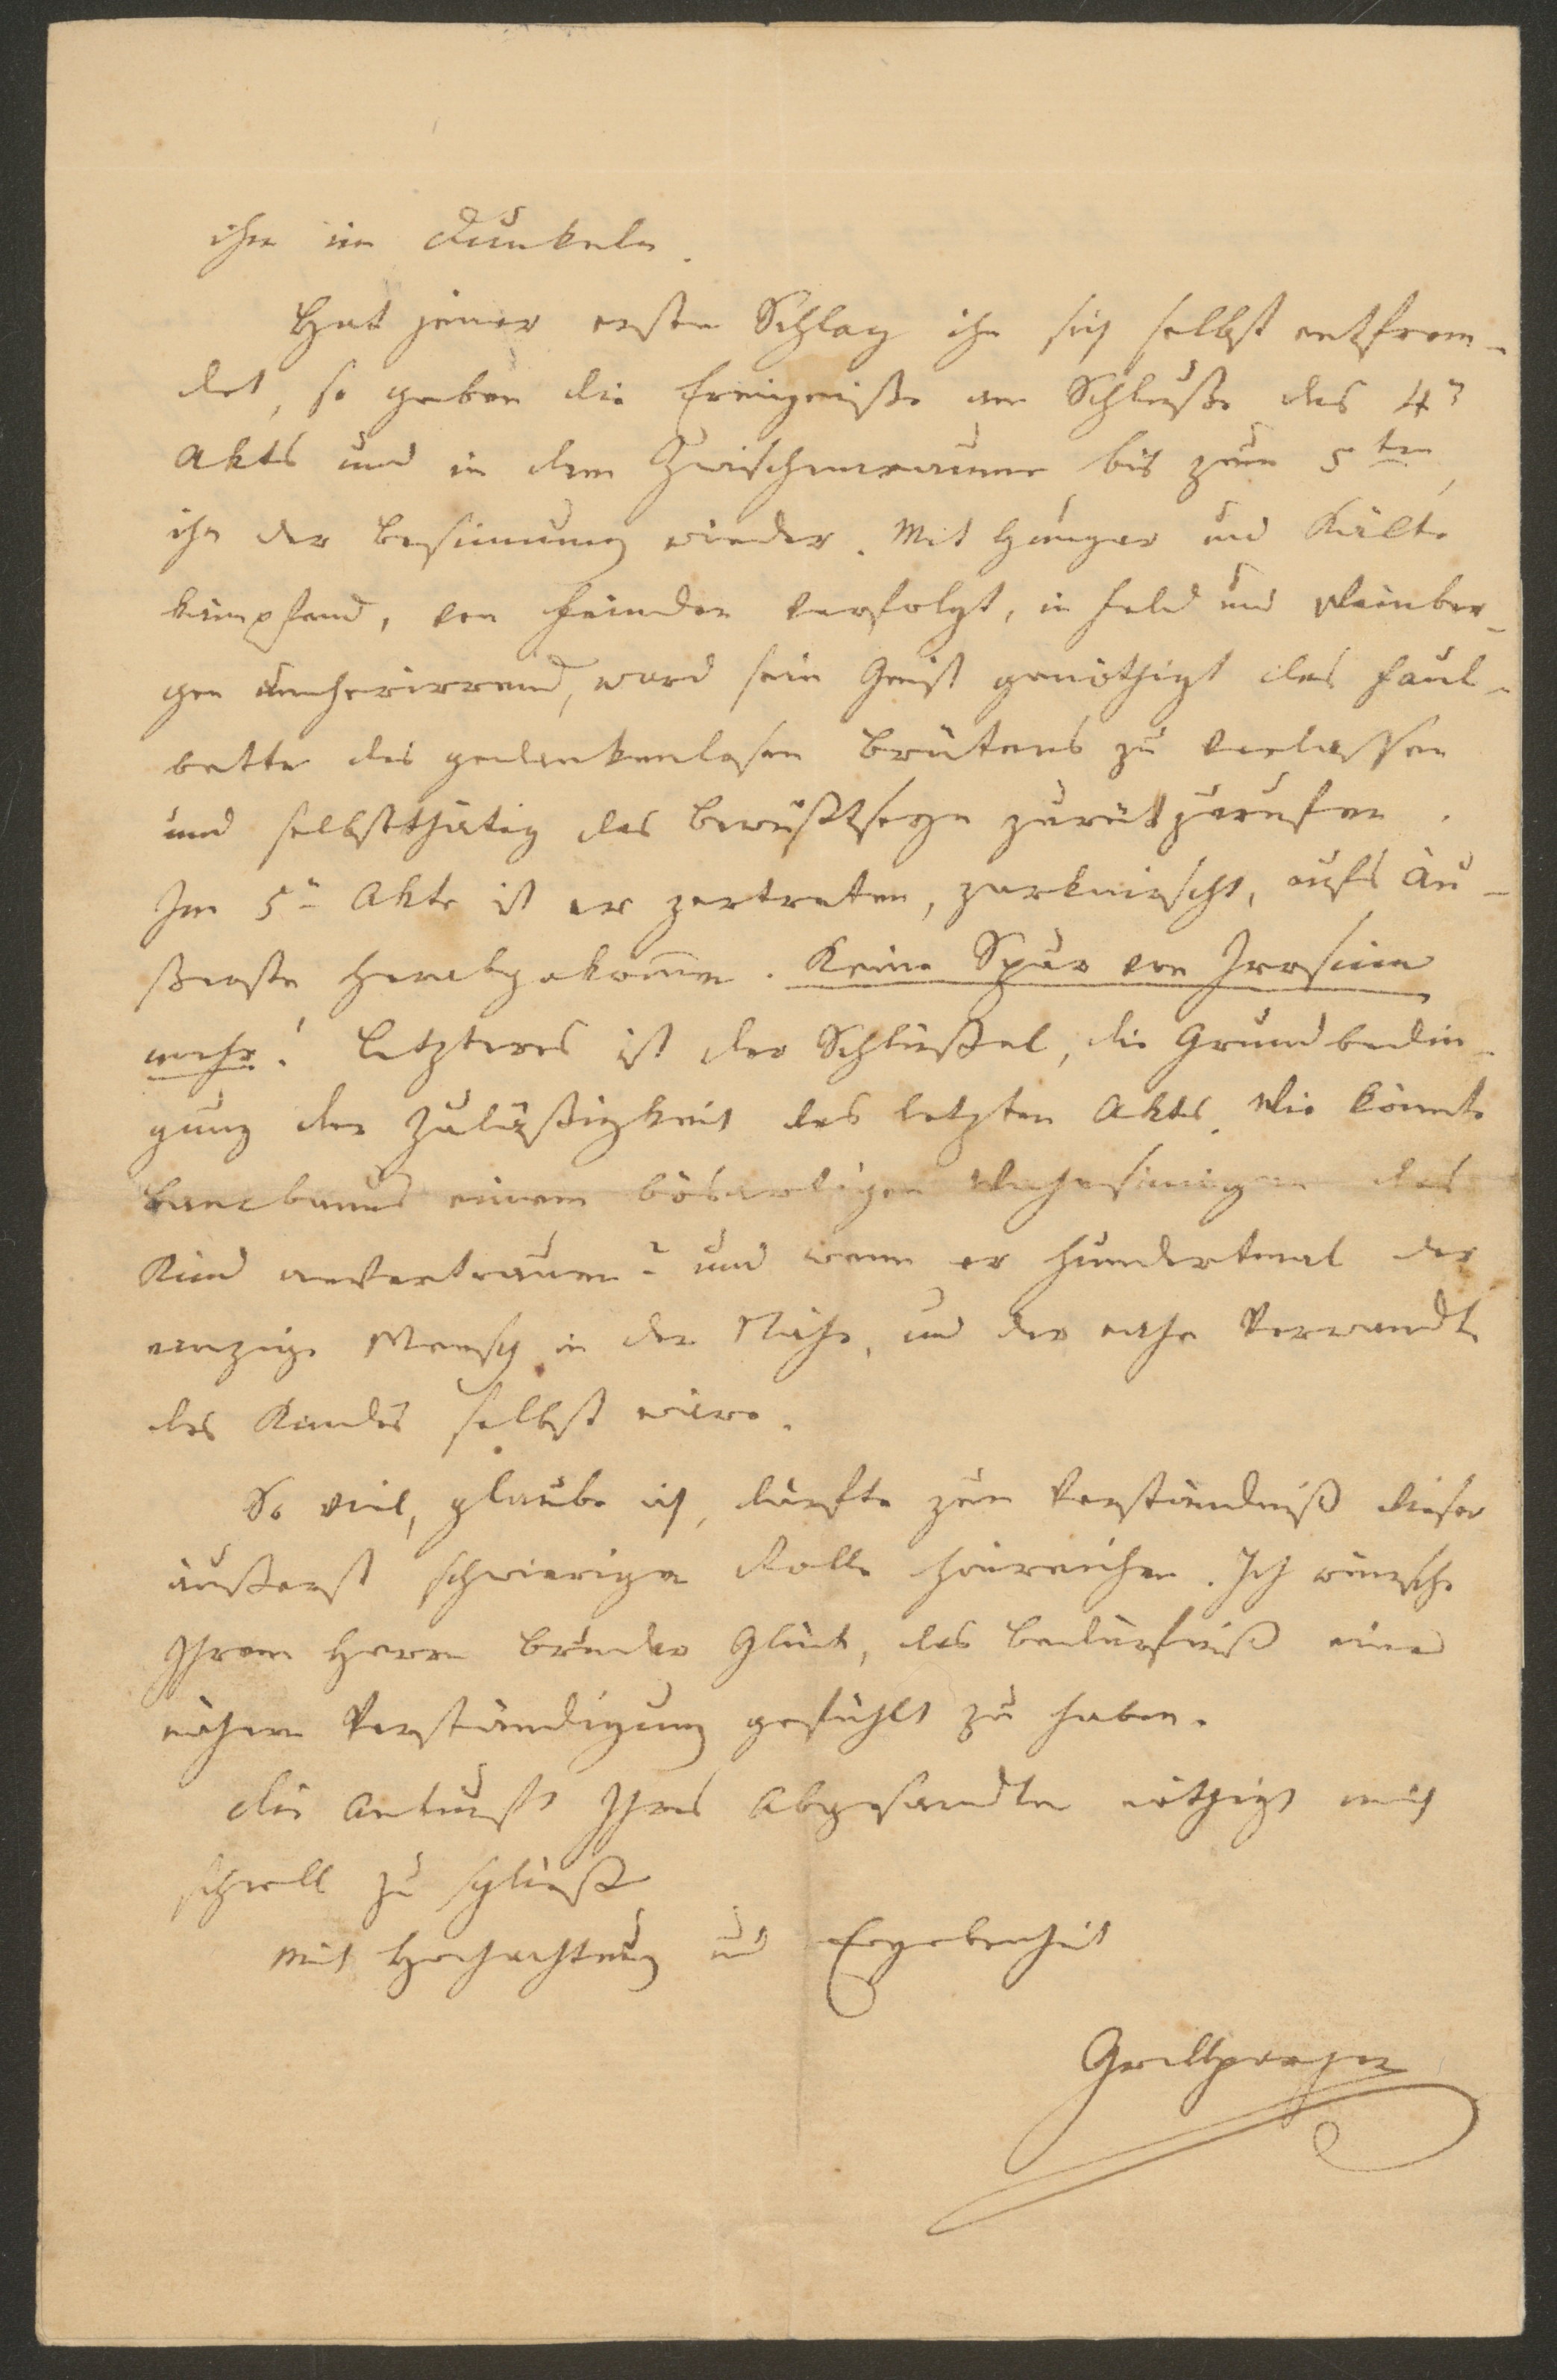 ihm im Dunkeln.
Hat jener erste Schlag ihn sich selbst entfrem-
det, so geben die Ereigniße am Schluße des 4n
Akts und in dem Zwischenraume bis zum 5ten,
ihn der Besinnung wieder. Mit Hunger und Kälte
kämpfend, von Feinden verfolgt, in Feld und Weinber-
gen umherirrend, ward sein Geist genöthigt das Faul-
bette des gedankenlosen Brütens zu verlassen
und selbstthätig das Bewußtseyn zurückzurufen.
Im 5n Akte ist er zertreten, zerknirscht, aufs Äu-
ßerste herabgekom̅en. Keine Spur von Irrsinn
mehr! Letzteres ist der Schlüßel, die Grundbedin-
gung der Zuläßigkeit des letzten Akts. Wie könnte
Bancbanus einem bösartigen Wahnsinnigen das
Kind anvertrauen? und wenn er hundertmal der
einzige Mensch in der Nähe, und der nahe Verwandte
des Kindes selbst wäre.
So viel, glaube ich, dürfte zum Verständniß dieser
äußerst schwierigen Rolle hinreichen. Ich wünsche
Ihrem Herrn Bruder Glück, das Bedürfniß einer
nähern Verständigung gefühlt zu haben.
Die Ankunft Ihres Abgesandten nöthigt mich
schnell zu schließen
Mit Hochachtung und Ergebenheit
Grillparzer